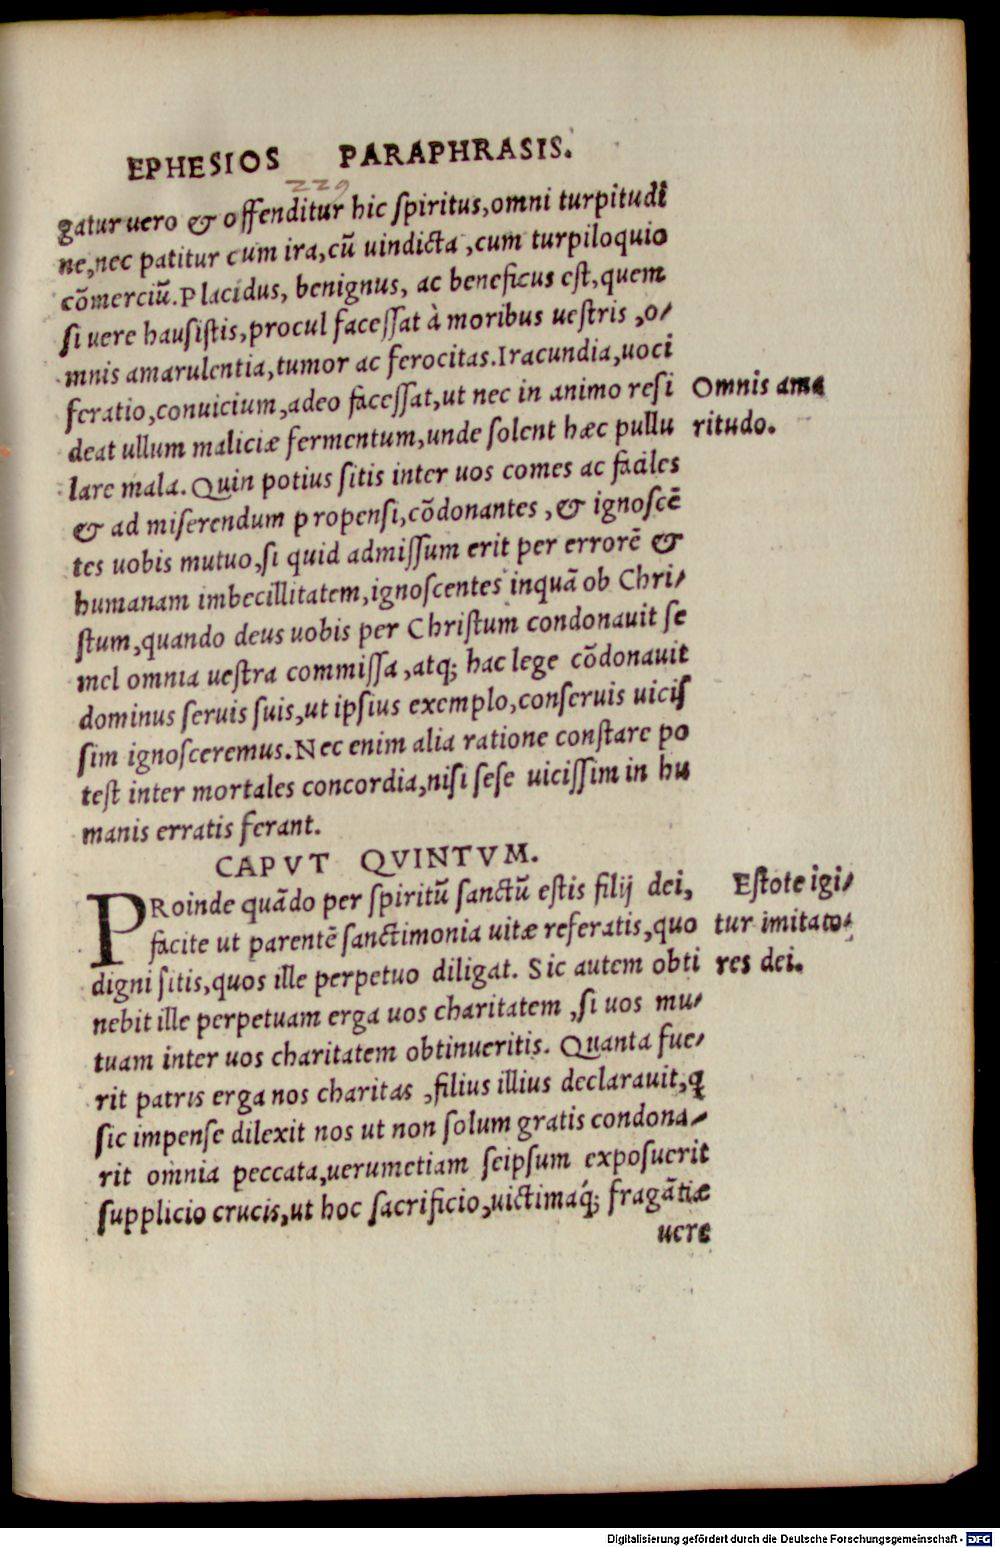 EPHESIOS PARAPHRASIS.
229
gatur uero & offenditur hic ſpiritus, omni turpitudĩ
ne, nec patitur cum ira, cũ uindicta, cum turpiloquio
cõmerciũ. Placidus, benignus, ac beneficus eſt, quem
ſi uere hauſiſtis, procul faceſſat à moribus ueſtris, o-
mnis amarulentia, tumor ac ferocitas. Iracundia, uoci
feratio, conuicium, adeo faceſſat, ut nec in animo reſi
deat ullum maliciæ fermentum, unde ſolent hæc pullu
lare mala. Quin potius ſitis inter uos comes ac faciles
& ad miſerendum propenſi, cõdonantes, & ignoſcẽ
tes uobis mutuo, ſi quid admiſſum erit per errorẽ &
humanam imbecillitatem, ignoſcentes inquã ob Chri-
ſtum, quando deus uobis per Chriſtum condonauit ſe
mel omnia ueſtra commiſſa, atq; hac lege cõdonauit
dominus ſeruis ſuis, ut ipſius exemplo, conſeruis uiciſ
ſim ignoſceremus. Nec enim alia ratione conſtare po
teſt inter mortales concordia, niſi ſeſe uiciſſim in hu
manis erratis ferant.
Omnis ama
ritudo.
CAPVT QVINTVM.
PRoinde quãdo per ſpiritũ ſanctũ eſtis filij dei,
facite ut parentẽ ſanctimonia uitæ referatis, quo
digni ſitis, quos ille perpetuo diligat. Sic autem obti
nebit ille perpetuam erga uos charitatem, ſi uos mu-
tuam inter uos charitatem obtinueritis. Quanta fue-
rit patris erga nos charitas, filius illius declarauit, q
ſic impenſe dilexit nos ut non ſolum gratis condona-
rit omnia peccata, uerumetiam ſeipſum expoſuerit
ſupplicio crucis, ut hoc ſacrificio, uictimaq́; fragãtiæ
uere
Eſtote igi-
tur imitato-
res dei.
Digitalisierung gefördert durch die Deutsche Forschungsgemeinschaft - DFG